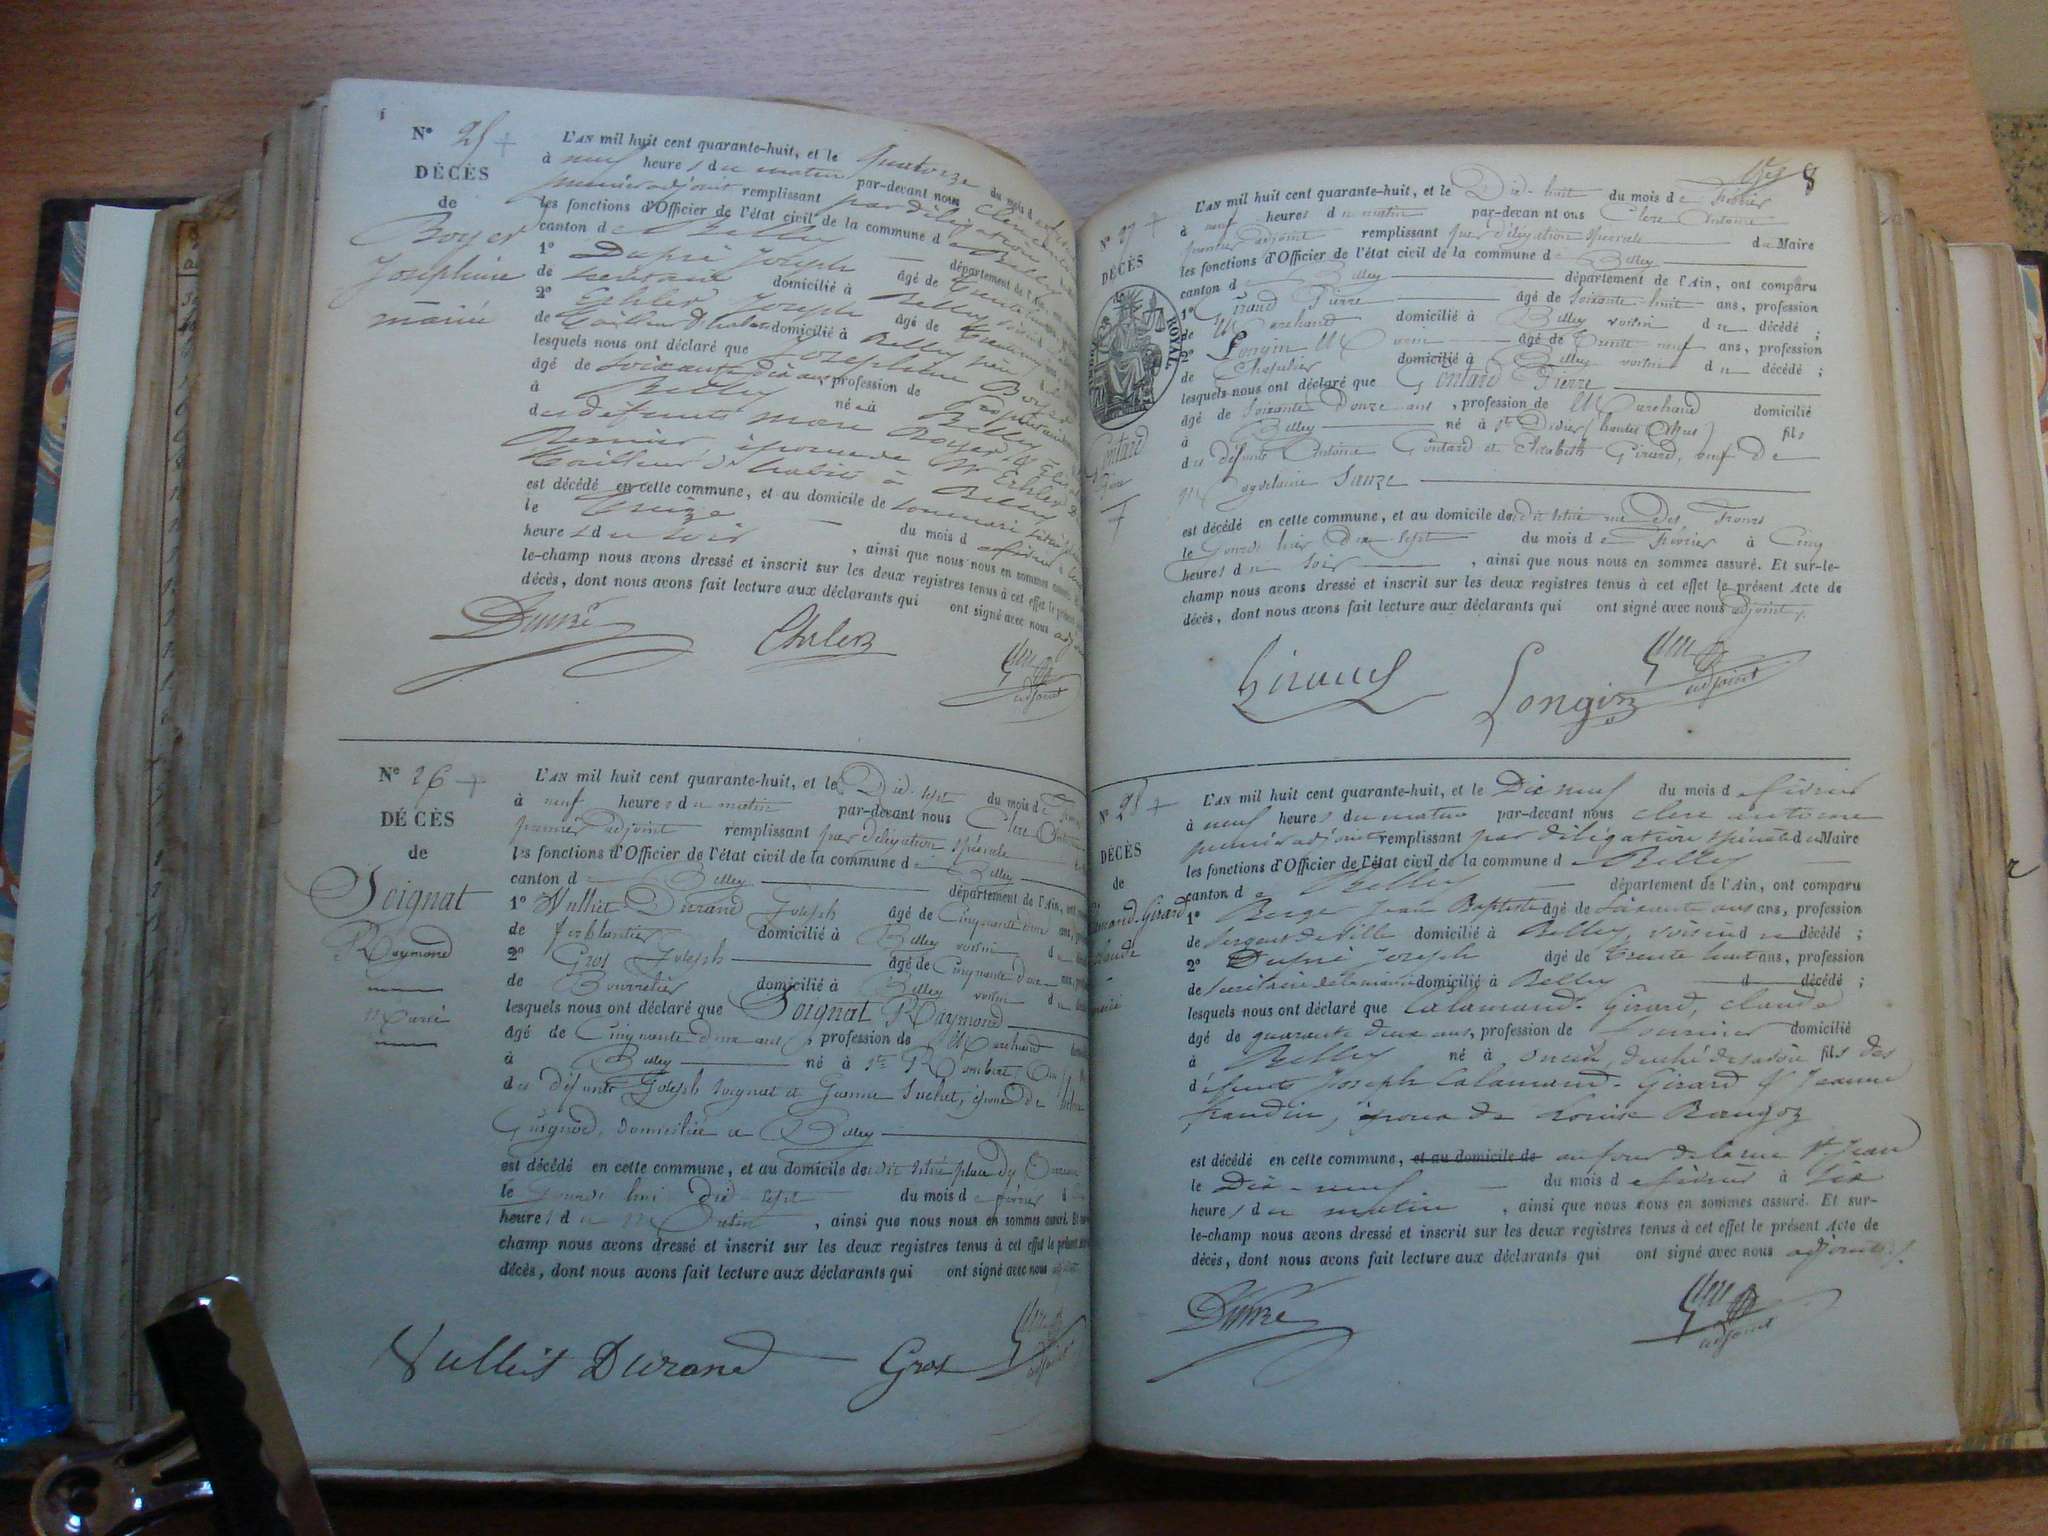 N° 25 +
DÉCÈS
de
Boyer
Josephine
mariée
L'AN mil huit cent quarante-huit, et le quatorze du mois de
à neuf heures du matin par-devant nous Clerc
premier adjoint remplissant par délégation
les fonctions d'Officier de l'état civil de la commune de Belley
canton de Belley département de l'Ain,
1° Dupré Joseph âgé de
de domicilié à Belley
2° Ehrler Joseph âgé de
de Tailleur d'habits domicilié à Belley
lesquels nous ont déclaré que Josephine Boyer
âgé de soixante dix ans profession de
à Belley née à Belley
des défunts Marc Boyer &
épouse de Mr Ehrler
Tailleur d'habits à Belley
est décédé en cette commune, et au domicile de son mari
le Treize du mois de février
heures du soir , ainsi que nous nous en sommes
le-champ nous avons dressé et inscrit sur les deux registres tenus à cet effet le présent
décès, dont nous avons fait lecture aux déclarants qui ont signé avec nous
Dupré Ehrler Clerc
adjoint
N° 26 +
DÉCÈS
de
Soignat
Raymond
Marié
L'AN mil huit cent quarante-huit, et le Dix-sept du mois de
à neuf heures du matin par-devant nous Clerc
premier adjoint remplissant par délégation spéciale
les fonctions d'Officier de l'état civil de la commune de Belley
canton de Belley département de l'Ain,
1° Vulliet Durand Joseph âgé de Cinquante
de ferblantier domicilié à Belley voisin
2° Gros Joseph âgé de Cinquante
de Bourrelier domicilié à Belley voisin
lesquels nous ont déclaré que Soignat Raymond
âgé de Cinquante deux ans, profession de Marchand
à Belley né à St Rambert
des défunts Joseph Soignat et Suchet, époux de
domiciliée à Belley
est décédé en cette commune, et au domicile de place
le Jourd'hui dix sept du mois de février à
heures du Matin , ainsi que nous nous en sommes assuré. Et
champ nous avons dressé et inscrit sur les deux registres tenus à cet effet le présent
décès, dont nous avons fait lecture aux déclarants qui ont signé avec nous adjoint
Vulliet Durand Gros Clerc
adjoint
8
N° 27 +
DÉCÈS
ROYAL
Gontard
Pierre
L'AN mil huit cent quarante-huit, et le Dix-huit du mois de Février
à neuf heures du matin par-devant nous Clerc Antoine
premier adjoint remplissant par délégation spéciale du Maire
les fonctions d'Officier de l'état civil de la commune de Belley
canton de Belley département de l'Ain, ont comparu
1° Giraud Pierre âgé de soixante-huit ans, profession
de Marchand domicilié à Belley voisin du décédé ;
2° Longin âgé de Trente neuf ans, profession
de Chapelier domicilié à Belley voisin du décédé ;
lesquels nous ont déclaré que Gontard Pierre
âgé de soixante douze ans , profession de Marchand domicilié
à Belley né à St Didier (hautes Alpes) fils
des défunts Antoine Gontard et Elisabeth Girard, veuf de
Magdelaine Sauze
est décédé en cette commune, et au domicile de
le Jourd'hui dix sept du mois de Février à Cinq
heures du soir , ainsi que nous nous en sommes assuré. Et sur-le-
champ nous avons dressé et inscrit sur les deux registres tenus à cet effet le présent Acte de
décès, dont nous avons fait lecture aux déclarants qui ont signé avec nous adjoint.
Giraud Longin Clerc
adjoint
N° 28 +
DÉCÈS
de
Calamand-Girard
Claude
marié
L'AN mil huit cent quarante-huit, et le Dix neuf du mois de février
à neuf heures du matin par-devant nous Clerc antoine
premier adjoint remplissant par délégation spéciale du Maire
les fonctions d'Officier de l'état civil de la commune de Belley
canton de Belley département de l'Ain, ont comparu
1° Berge Jean Baptiste âgé de soixante ans ans, profession
de Sergent de Ville domicilié à Belley, voisin du décédé ;
2° Dupré Joseph âgé de trente huit ans, profession
de secrétaire de la mairie domicilié à Belley décédé ;
lesquels nous ont déclaré que Calamand-Girard, claude
âgé de quarante deux ans, profession de fournier domicilié
à Belley né à duché de savoie fils des
défunts Joseph Calamand-Girard & Jeanne
époux de Louise
est décédé en cette commune, et au domicile de au four de la rue St Jean
le Dix-neuf du mois de février à six
heures du matin , ainsi que nous nous en sommes assuré. Et sur-
le-champ nous avons dressé et inscrit sur les deux registres tenus à cet effet le présent Acte de
décès, dont nous avons fait lecture aux déclarants qui ont signé avec nous adjoint.
Dupré Clerc
adjoint